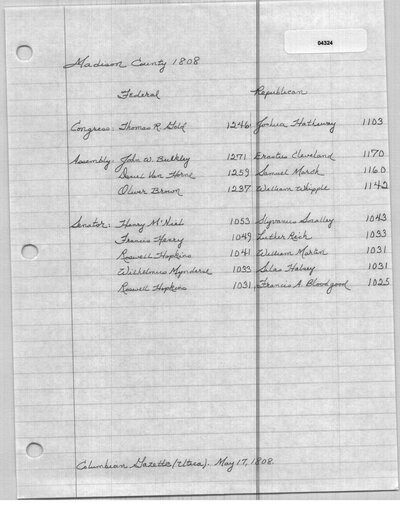 04324
Madison County 1808
Federal Republican
Congress: Thomas R. Gold 1246 Joshua Hathaway 1103
Assembly: John W. Bulkley 1271 Erastus Cleveland 1170
Daniel Van Horne 1259 Samuel March 1160
Oliver Brown 1237 William Whipple 1142
Senator: Henry McNeil 1053 Slyvanus Smalley 1043
Francis Henry 1049 Luther Rich 1033
Roswell Hopkins 1041 William Martin 1031
Wilhelmus Mynderse 1033 Silas Halsey 1031
Roswell Hopkins 1031 Francis A. Bloodgood 1025
Columbian Gazette (Utica). May 17, 1808.